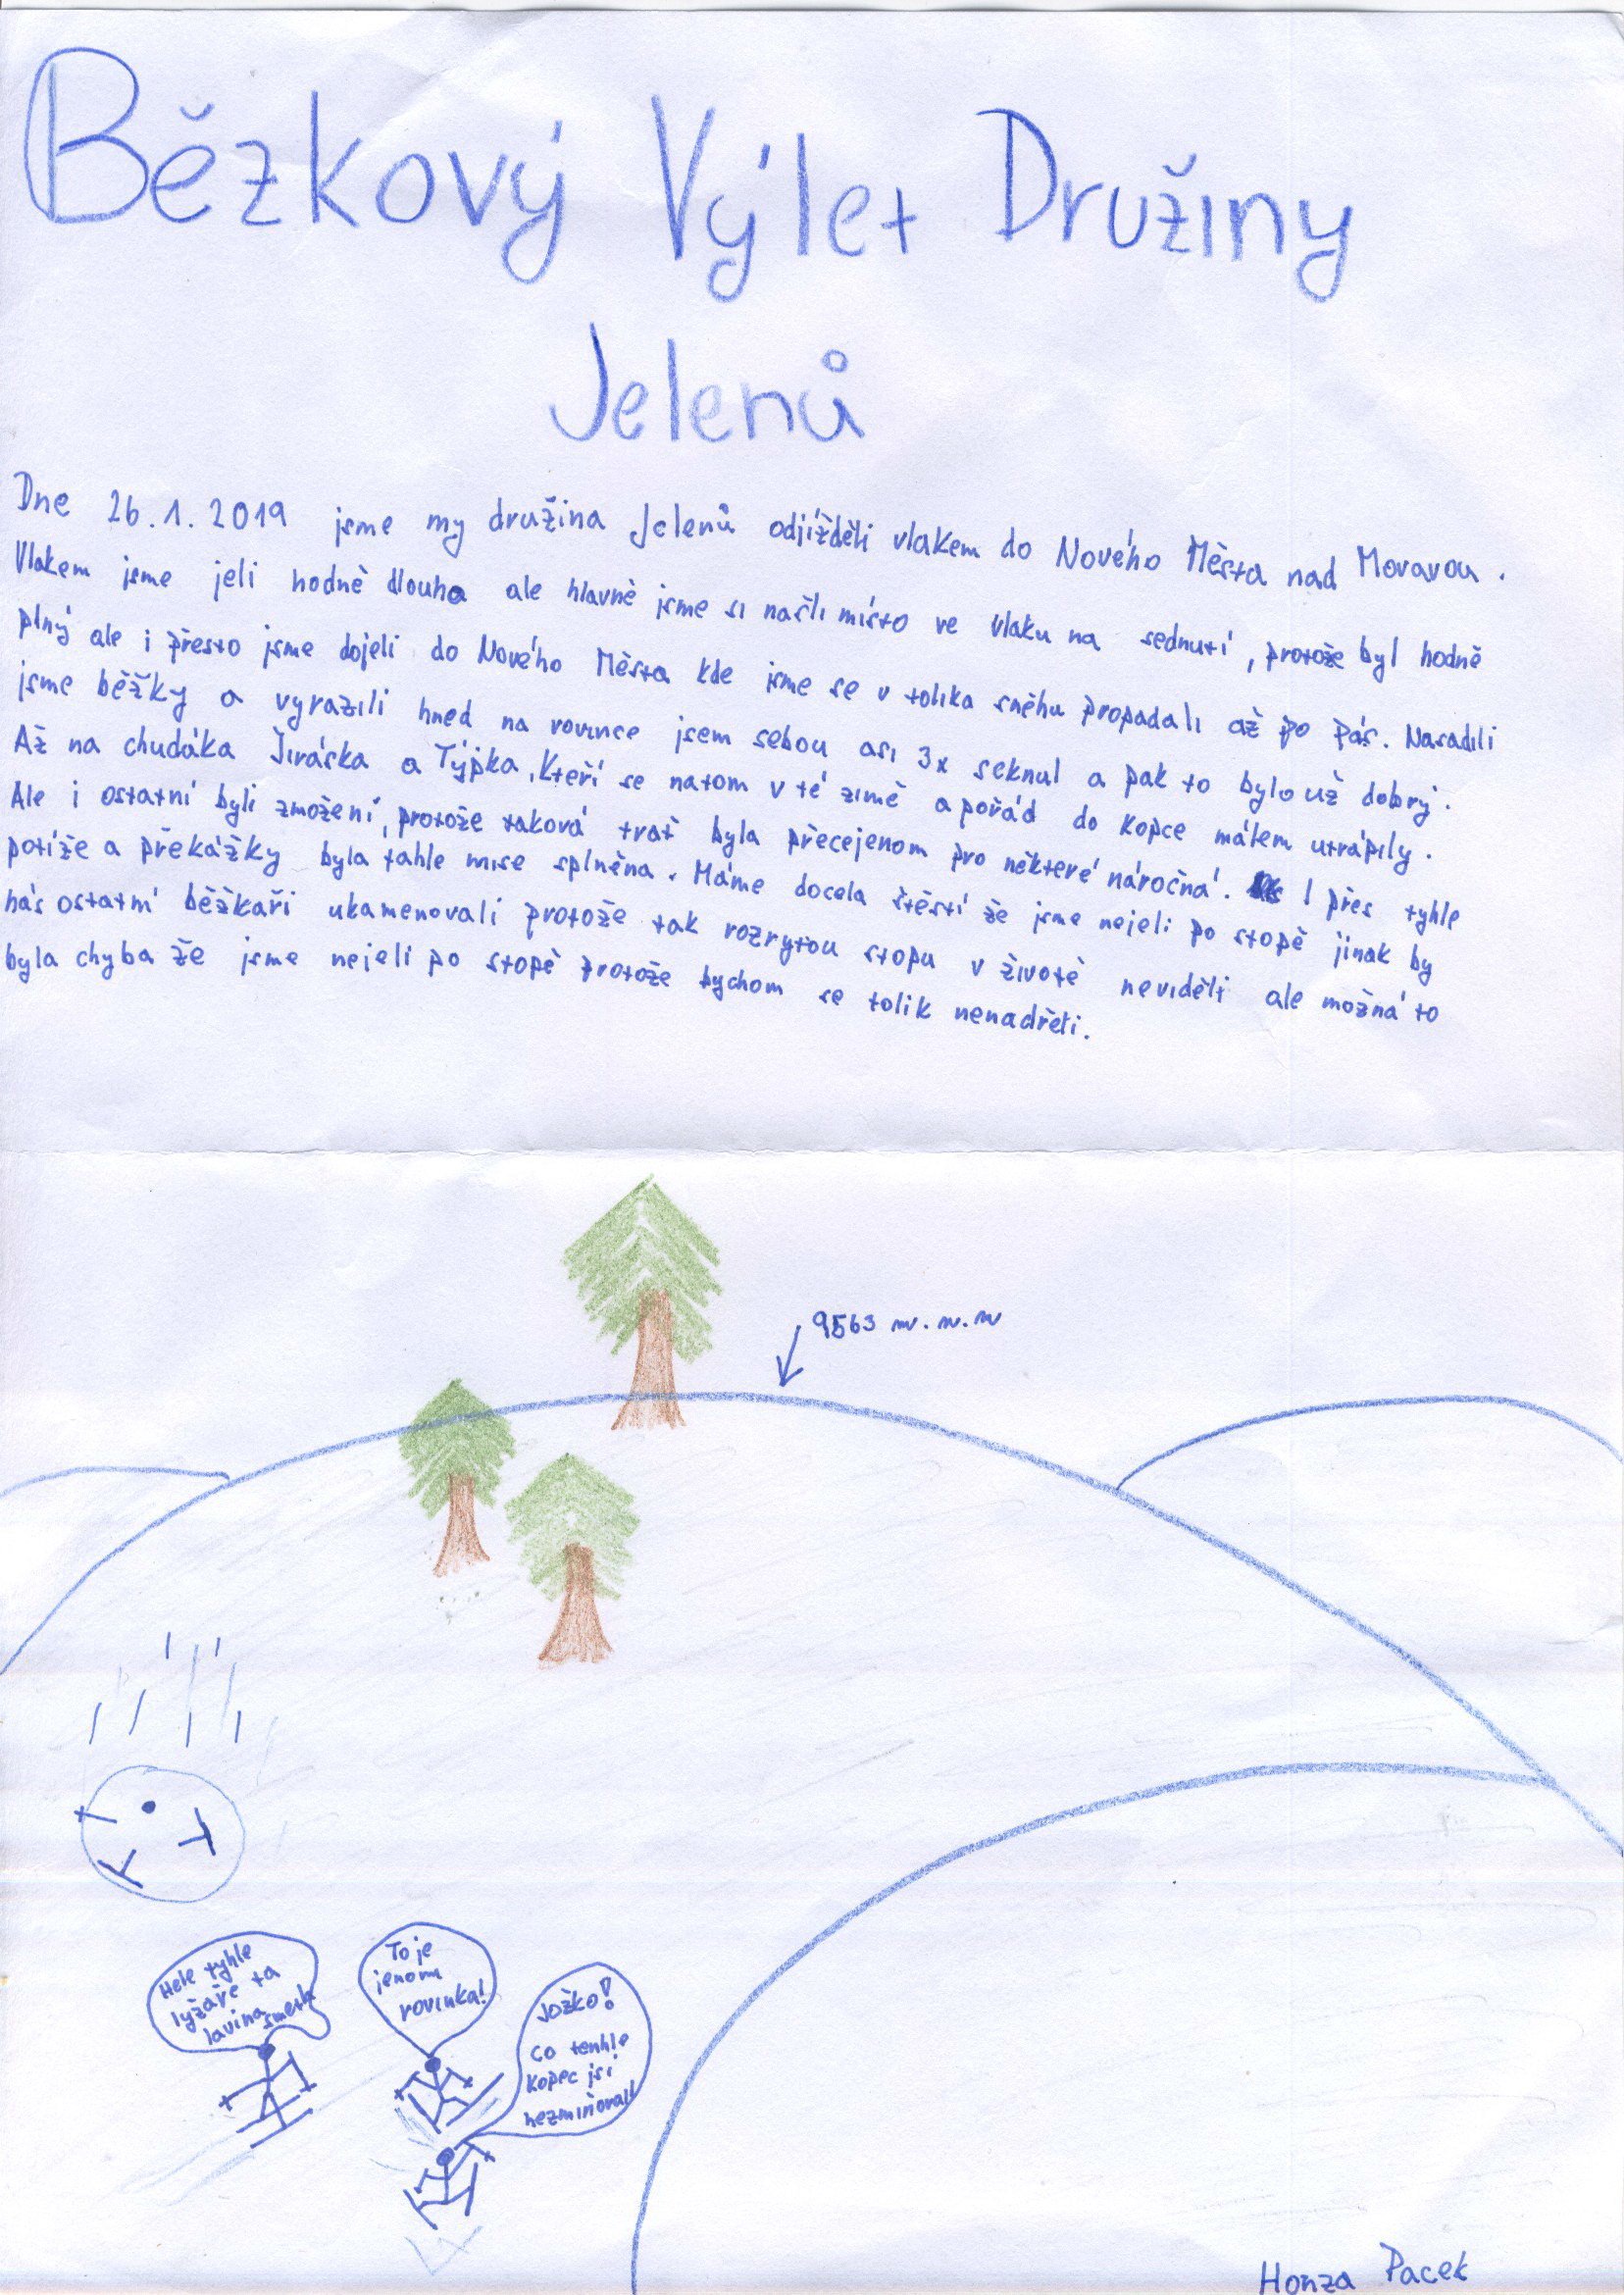 Bězkový Výlet Družiny
Jelenů
Dne 26.1.2019 jsme my družina Jelenů odjížděli vlakem do Nového Města nad Moravou.
Vlakem jsme jeli hodně dlouho ale hlavně jsme si našli místo ve vlaku na sednutí, protože byl hodně
plný ale i přesto jsme dojeli do Nového Města kde jsme se v tolika sněhu propadali až po pás. Nasadili
jsme běžky a vyrazili hned na rovince jsem sebou asi 3x seknul a pak to bylo už dobrý.
Až na chudáka Jiráska a Týpka, kteří se natom v té zimě a pořád do kopce málem utrápily.
Ale i ostatní byli zmožení, protože taková trať byla přecejenom pro některé náročná. I přes tyhle
potíže a překážky byla tahle mise splněna. Máme docela štěstí že jsme nejeli po stopě jinak by
nás ostatní běžkaři ukamenovali protože tak rozrytou stopu v životě neviděli ale možná to
byla chyba že jsme nejeli po stopě protože bychom se tolik nenadřeli.
9563 m.n.m
Hele tyhle
lyžaře ta
lavina smetla
To je
jenom
rovinka!
Jožko!
Co tenhle
kopec jsi
nezmiňoval!
Honza Pacek